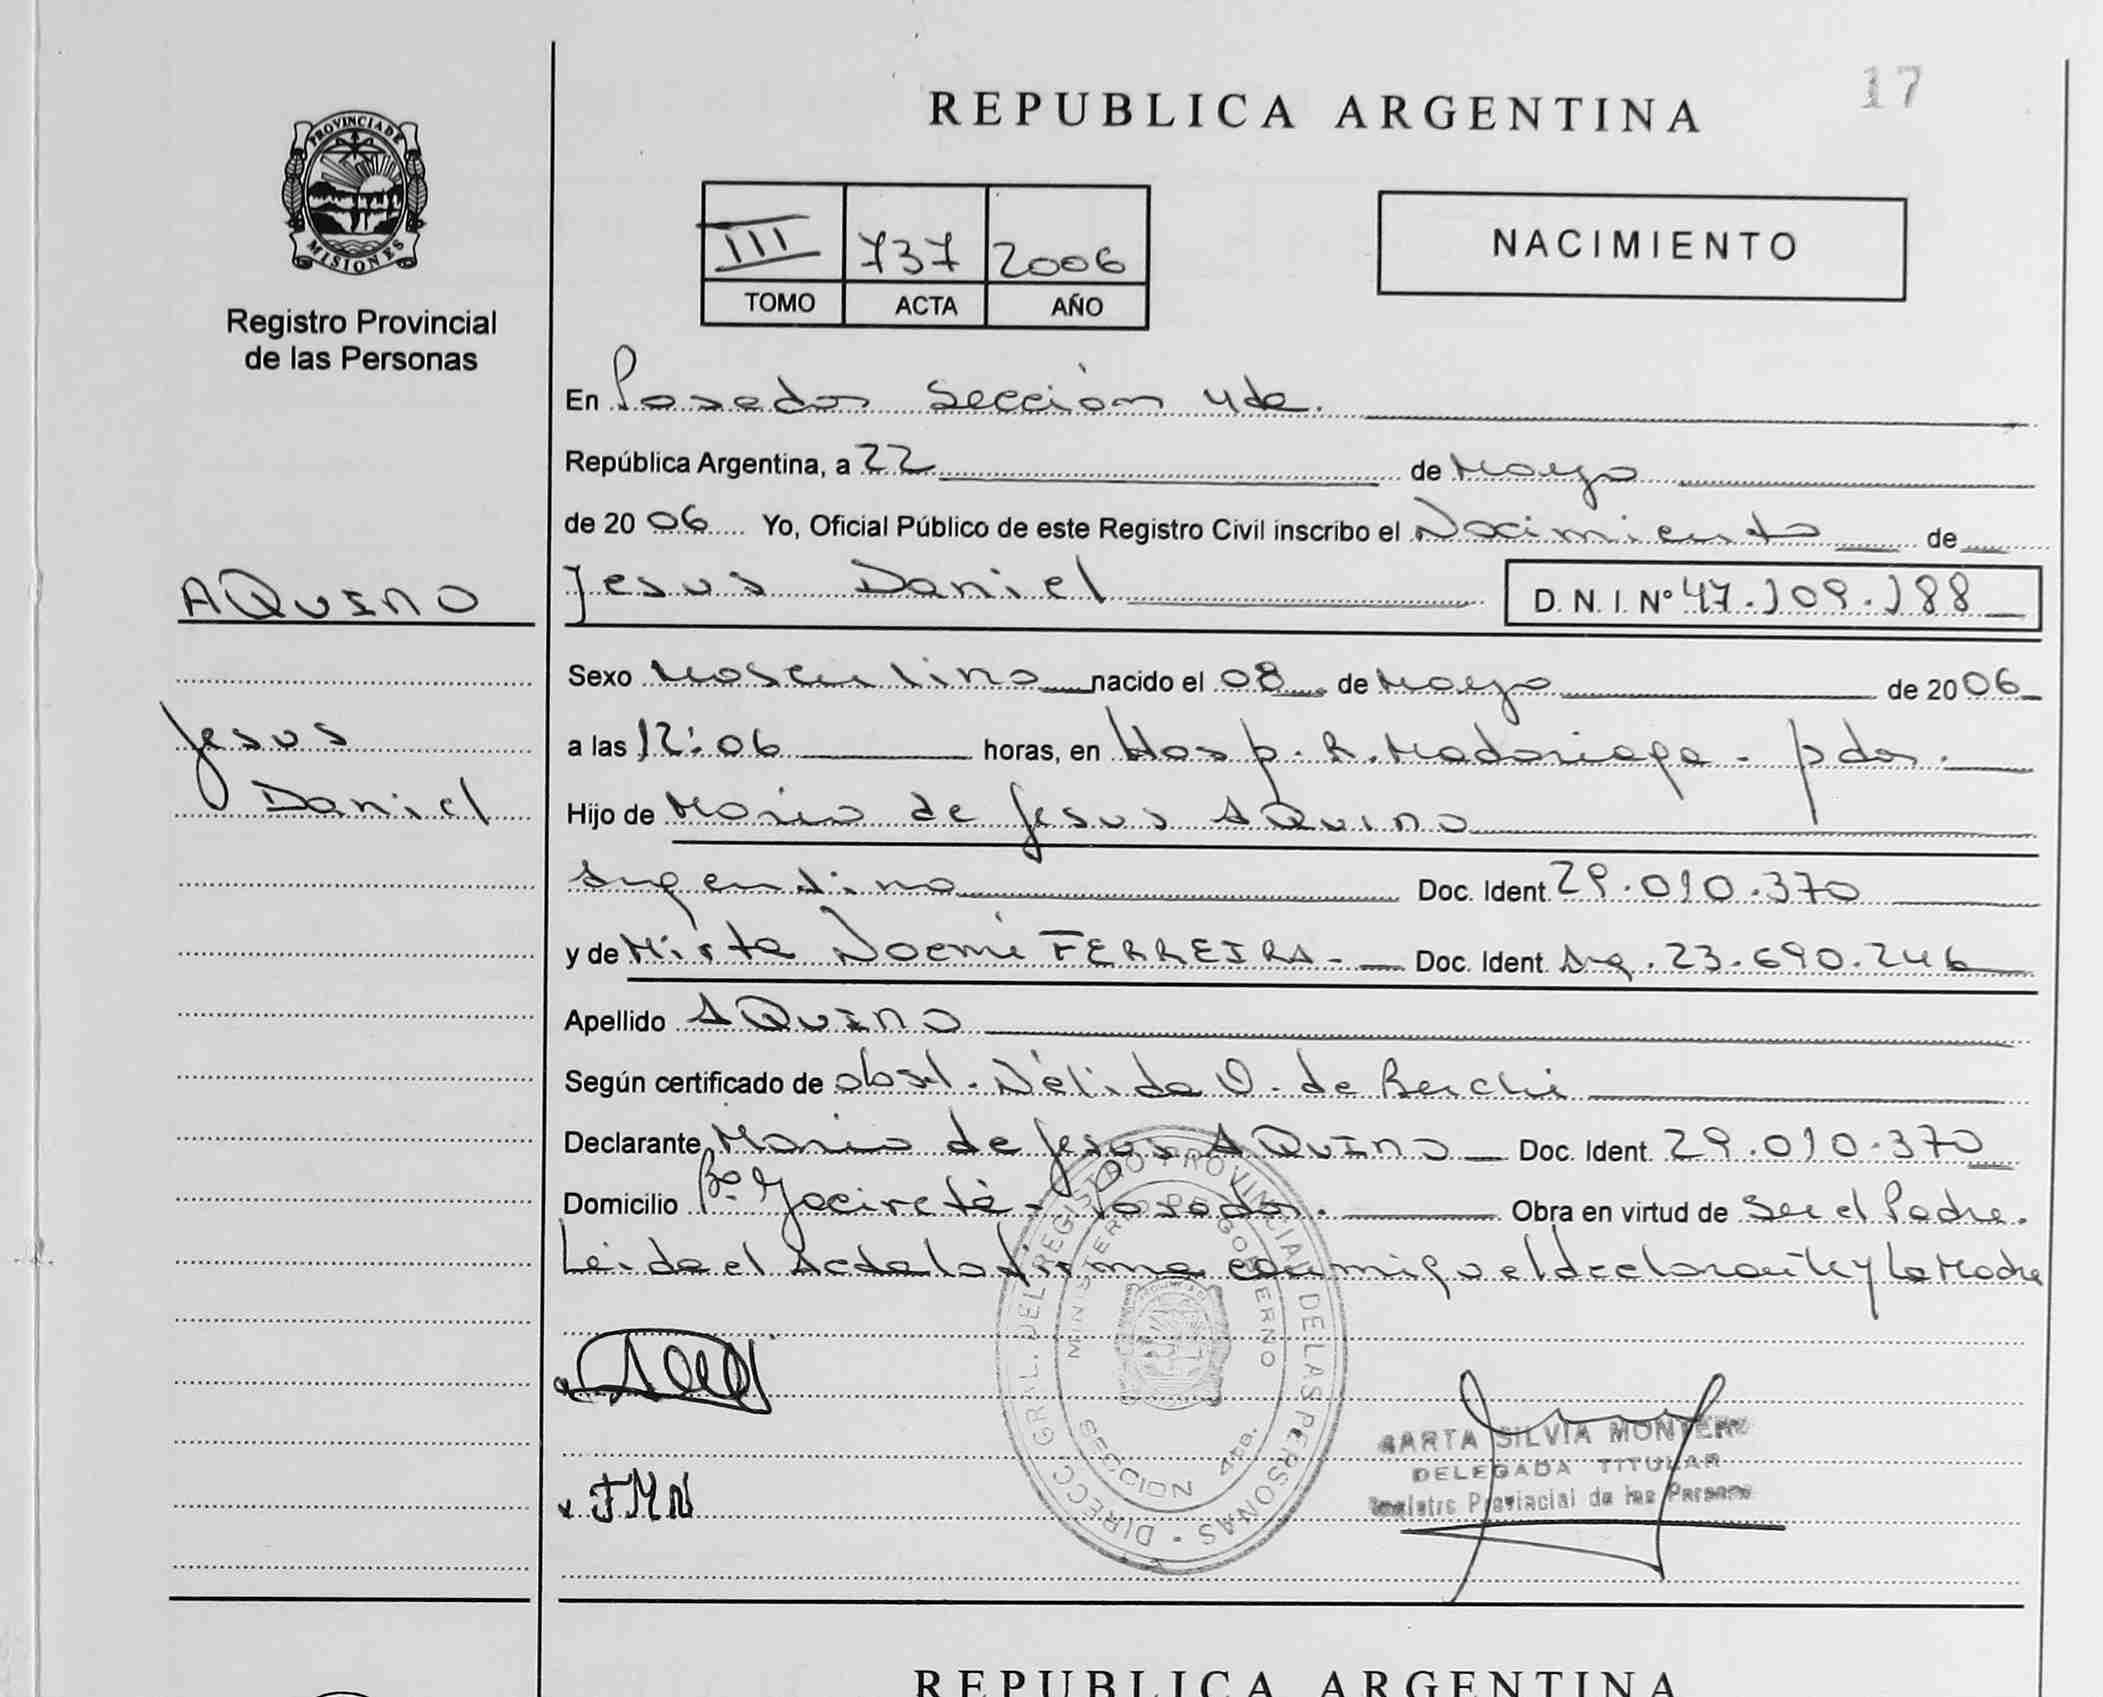 17
REPUBLICA ARGENTINA
PROVINCIA DE
MISIONES
Registro Provincial
de las Personas
III 737 2006
TOMO ACTA AÑO
NACIMIENTO
En Posadas Sección 4ta.
República Argentina, a 22 de Mayo
de 2006 Yo, Oficial Público de este Registro Civil inscribo el Nacimiento de
AQUINO
Jesus Daniel D.N.I. Nº 47.109.188
Sexo Masculino nacido el 08 de Mayo de 2006
Jesus
Daniel
a las 12:06 horas, en Hosp. R. Madariaga - pdas.
Hijo de Mario de Jesus AQUINO
Argentino Doc. Ident. 29.010.370
y de Mirta Noemi FERREIRA - Doc. Ident. Arg. 23.690.246
Apellido AQUINO
Según certificado de obst. Nélida O. de Berchi
Declarante Mario de Jesus AQUINO Doc. Ident. 29.010.370
Domicilio Bº Yacireté - Posadas. Obra en virtud de Ser el Padre.
Leida el Acta la firma conmigo el declarante y la Madre
DIRECC. GRAL. DEL REGISTRO PROVINCIAL DE LAS PERSONAS
MINISTERIO DE GOBIERNO
SECCION 4ta.
FMN
MARTA SILVIA MONTERO
DELEGADA TITULAR
Registro Provincial de las Personas
REPUBLICA ARGENTINA